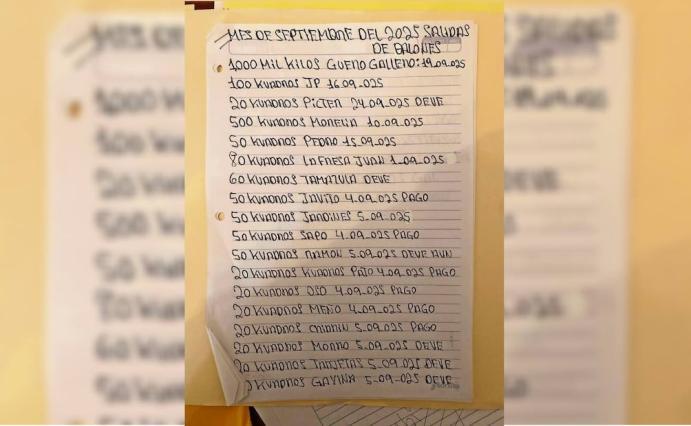 MES DE SEPTIEMBRE DEL 2025 SALIDAS
DE BALONES
1,000 MIL KILOS GUERO GALLERO: 19.09.025
100 KUADROS JP 16.09.025
20 KUADROS PICTER 24.09.025 DEVE
500 KUADROS MORENA 10.09.025
50 KUADROS PEDRO 15.09.025
80 KUADROS LA FRESA JUAN 1.09.025
60 KUADROS TAMAZULA DEVE
50 KUADROS JAVITO 4.09.025 PAGO
50 KUADROS JARDINES 5.09.025
50 KUADROS SAPO 4.09.025 PAGO
50 KUADROS RAMON 5.09.025 DEVE AUN
20 KUADROS KUADROS PATO 4.09.025 PAGO
20 KUADROS OSO 4.09.025 PAGO
20 KUADROS MERIO 4.09.025 PAGO
20 KUADROS 5.09.025 PAGO
20 KUADROS MORRO 5.09.025 DEVE
20 KUADROS TARJETAS 5.09.025 DEVE
KUADROS GAVINA 5.09.025 DEVE